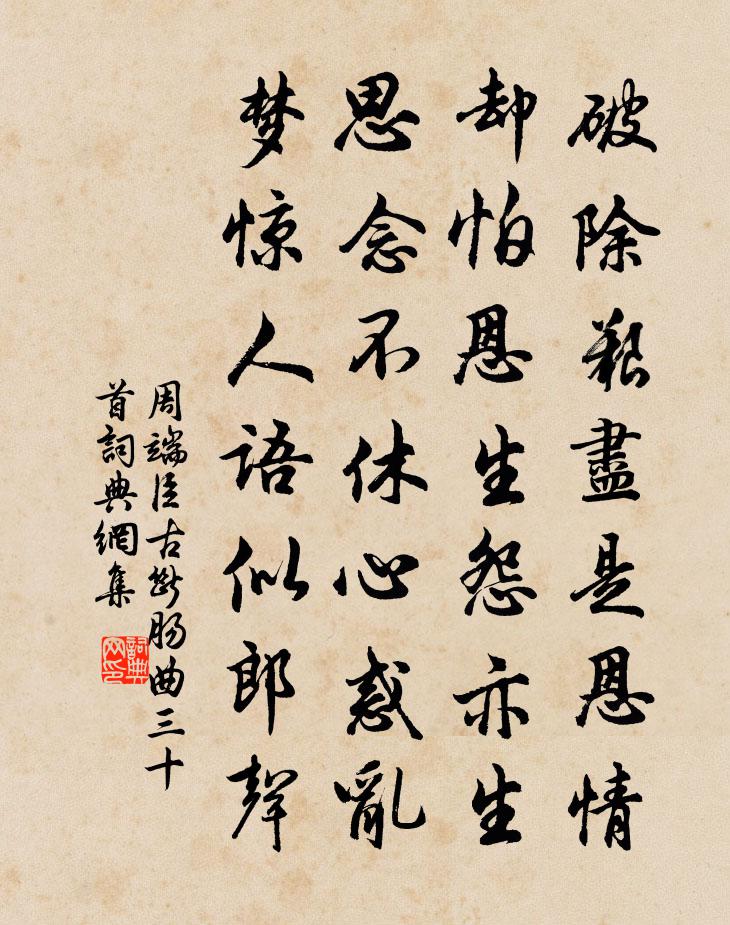 破除艱盡是恩情
却怕恩生怨亦生
思念不休心惑亂
梦惊人语似郎聲
周端臣古断肠曲三十
首詞典網集
詞典
网印